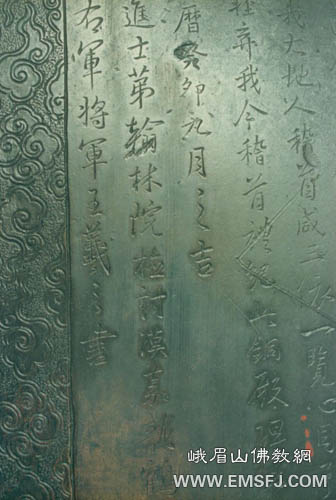 我大地人稽首咸三依一覽心
弃我今稽首禮此銅殿
曆癸卯九月之吉
進士第翰林院檢討漢嘉
右軍將軍王羲之書
峨眉山佛教網
WWW.EMSFJ.COM